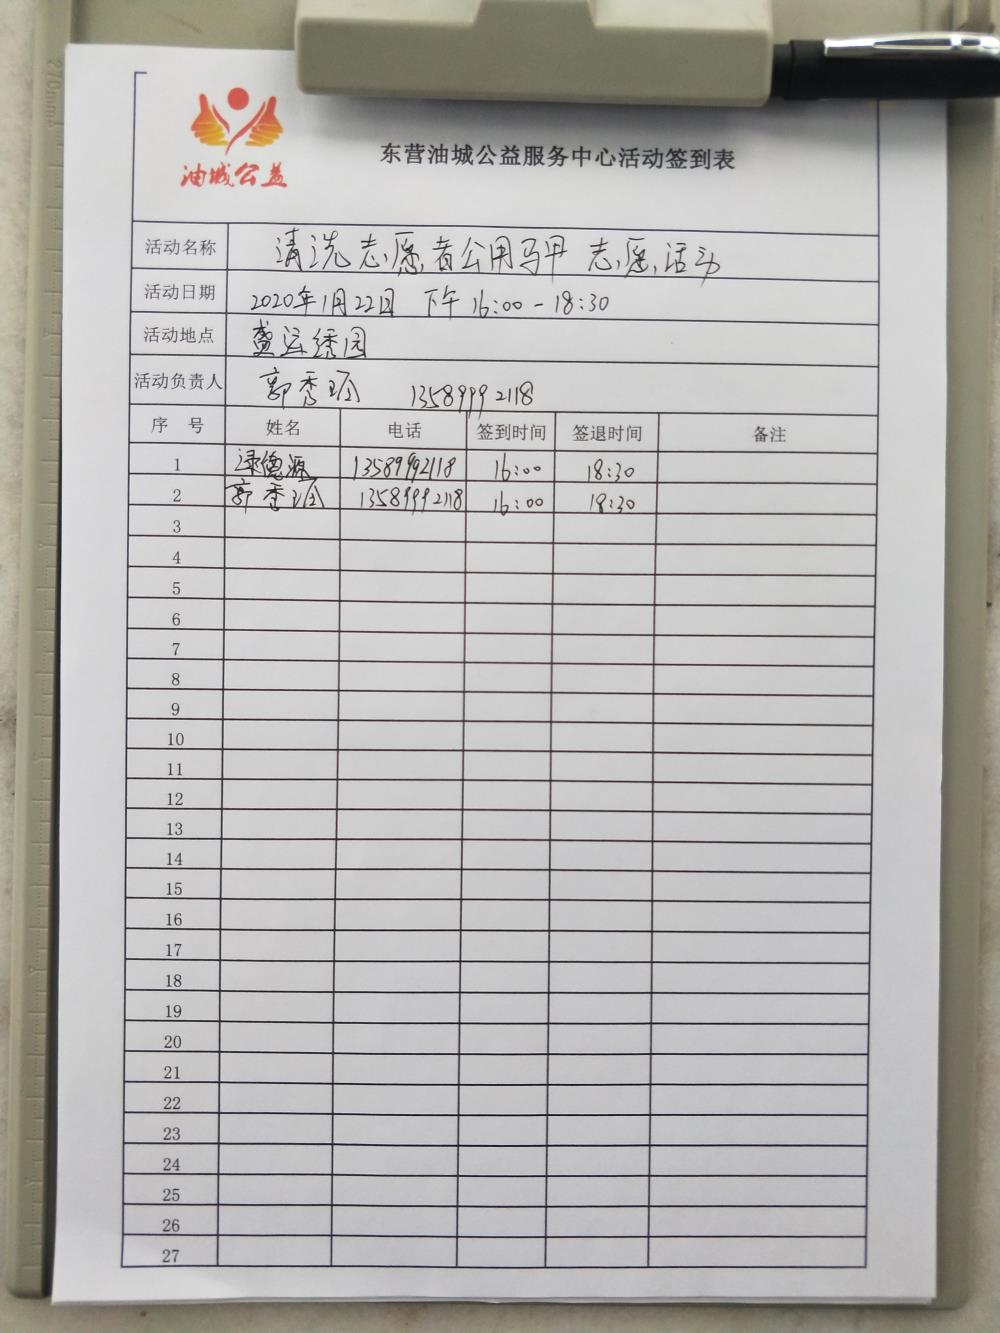 270mm
油城公益
东营油城公益服务中心活动签到表
活动名称 清洗志愿者公用马甲 志愿活动
活动日期 2020年1月22日 下午16:00-18:30
活动地点 盛运绣园
活动负责人 郭秀 13589992118
序 号 姓名 电话 签到时间 签退时间 备注
1 德源 13589992118 16:00 18:30
2 郭秀 13589992118 16:00 18:30
3
4
5
6
7
8
9
10
11
12
13
14
15
16
17
18
19
20
21
22
23
24
25
26
27